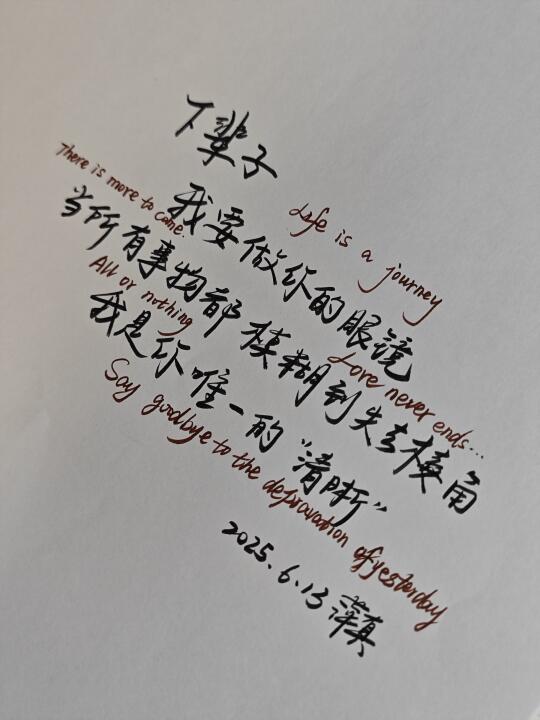 下辈子
There is more to come.
Life is a journey
我要做你的眼镜
当所有事物都模糊到失去棱角
All or nothing
Love never ends...
我是你唯一的“清晰”
Say goodbye to the depravation of yesterday
2025.6.13